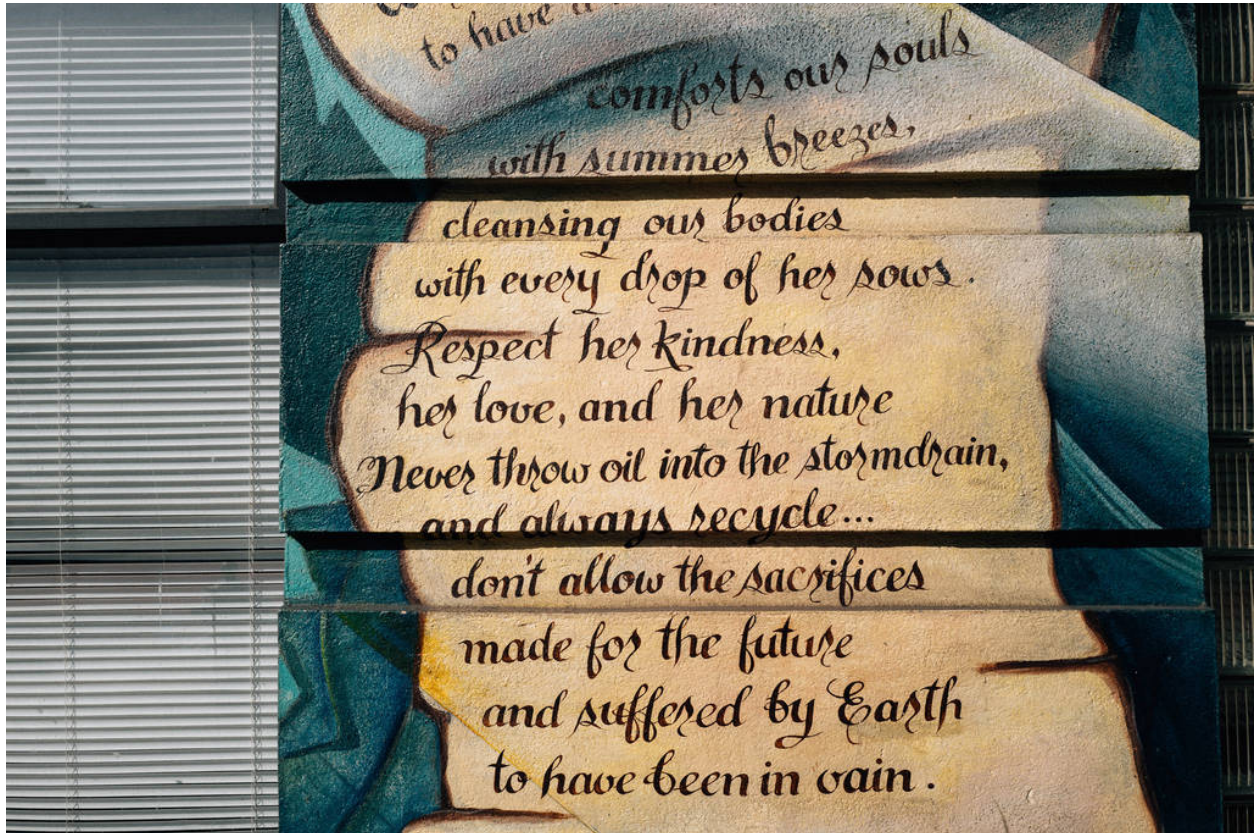 to have
comforts our souls
with summer breezes,
cleansing our bodies
with every drop of her sows.
Respect her kindness,
her love, and her nature
Never throw oil into the stormdrain,
and always recycle...
don't allow the sacrifices
made for the future
and suffered by Earth
to have been in vain.